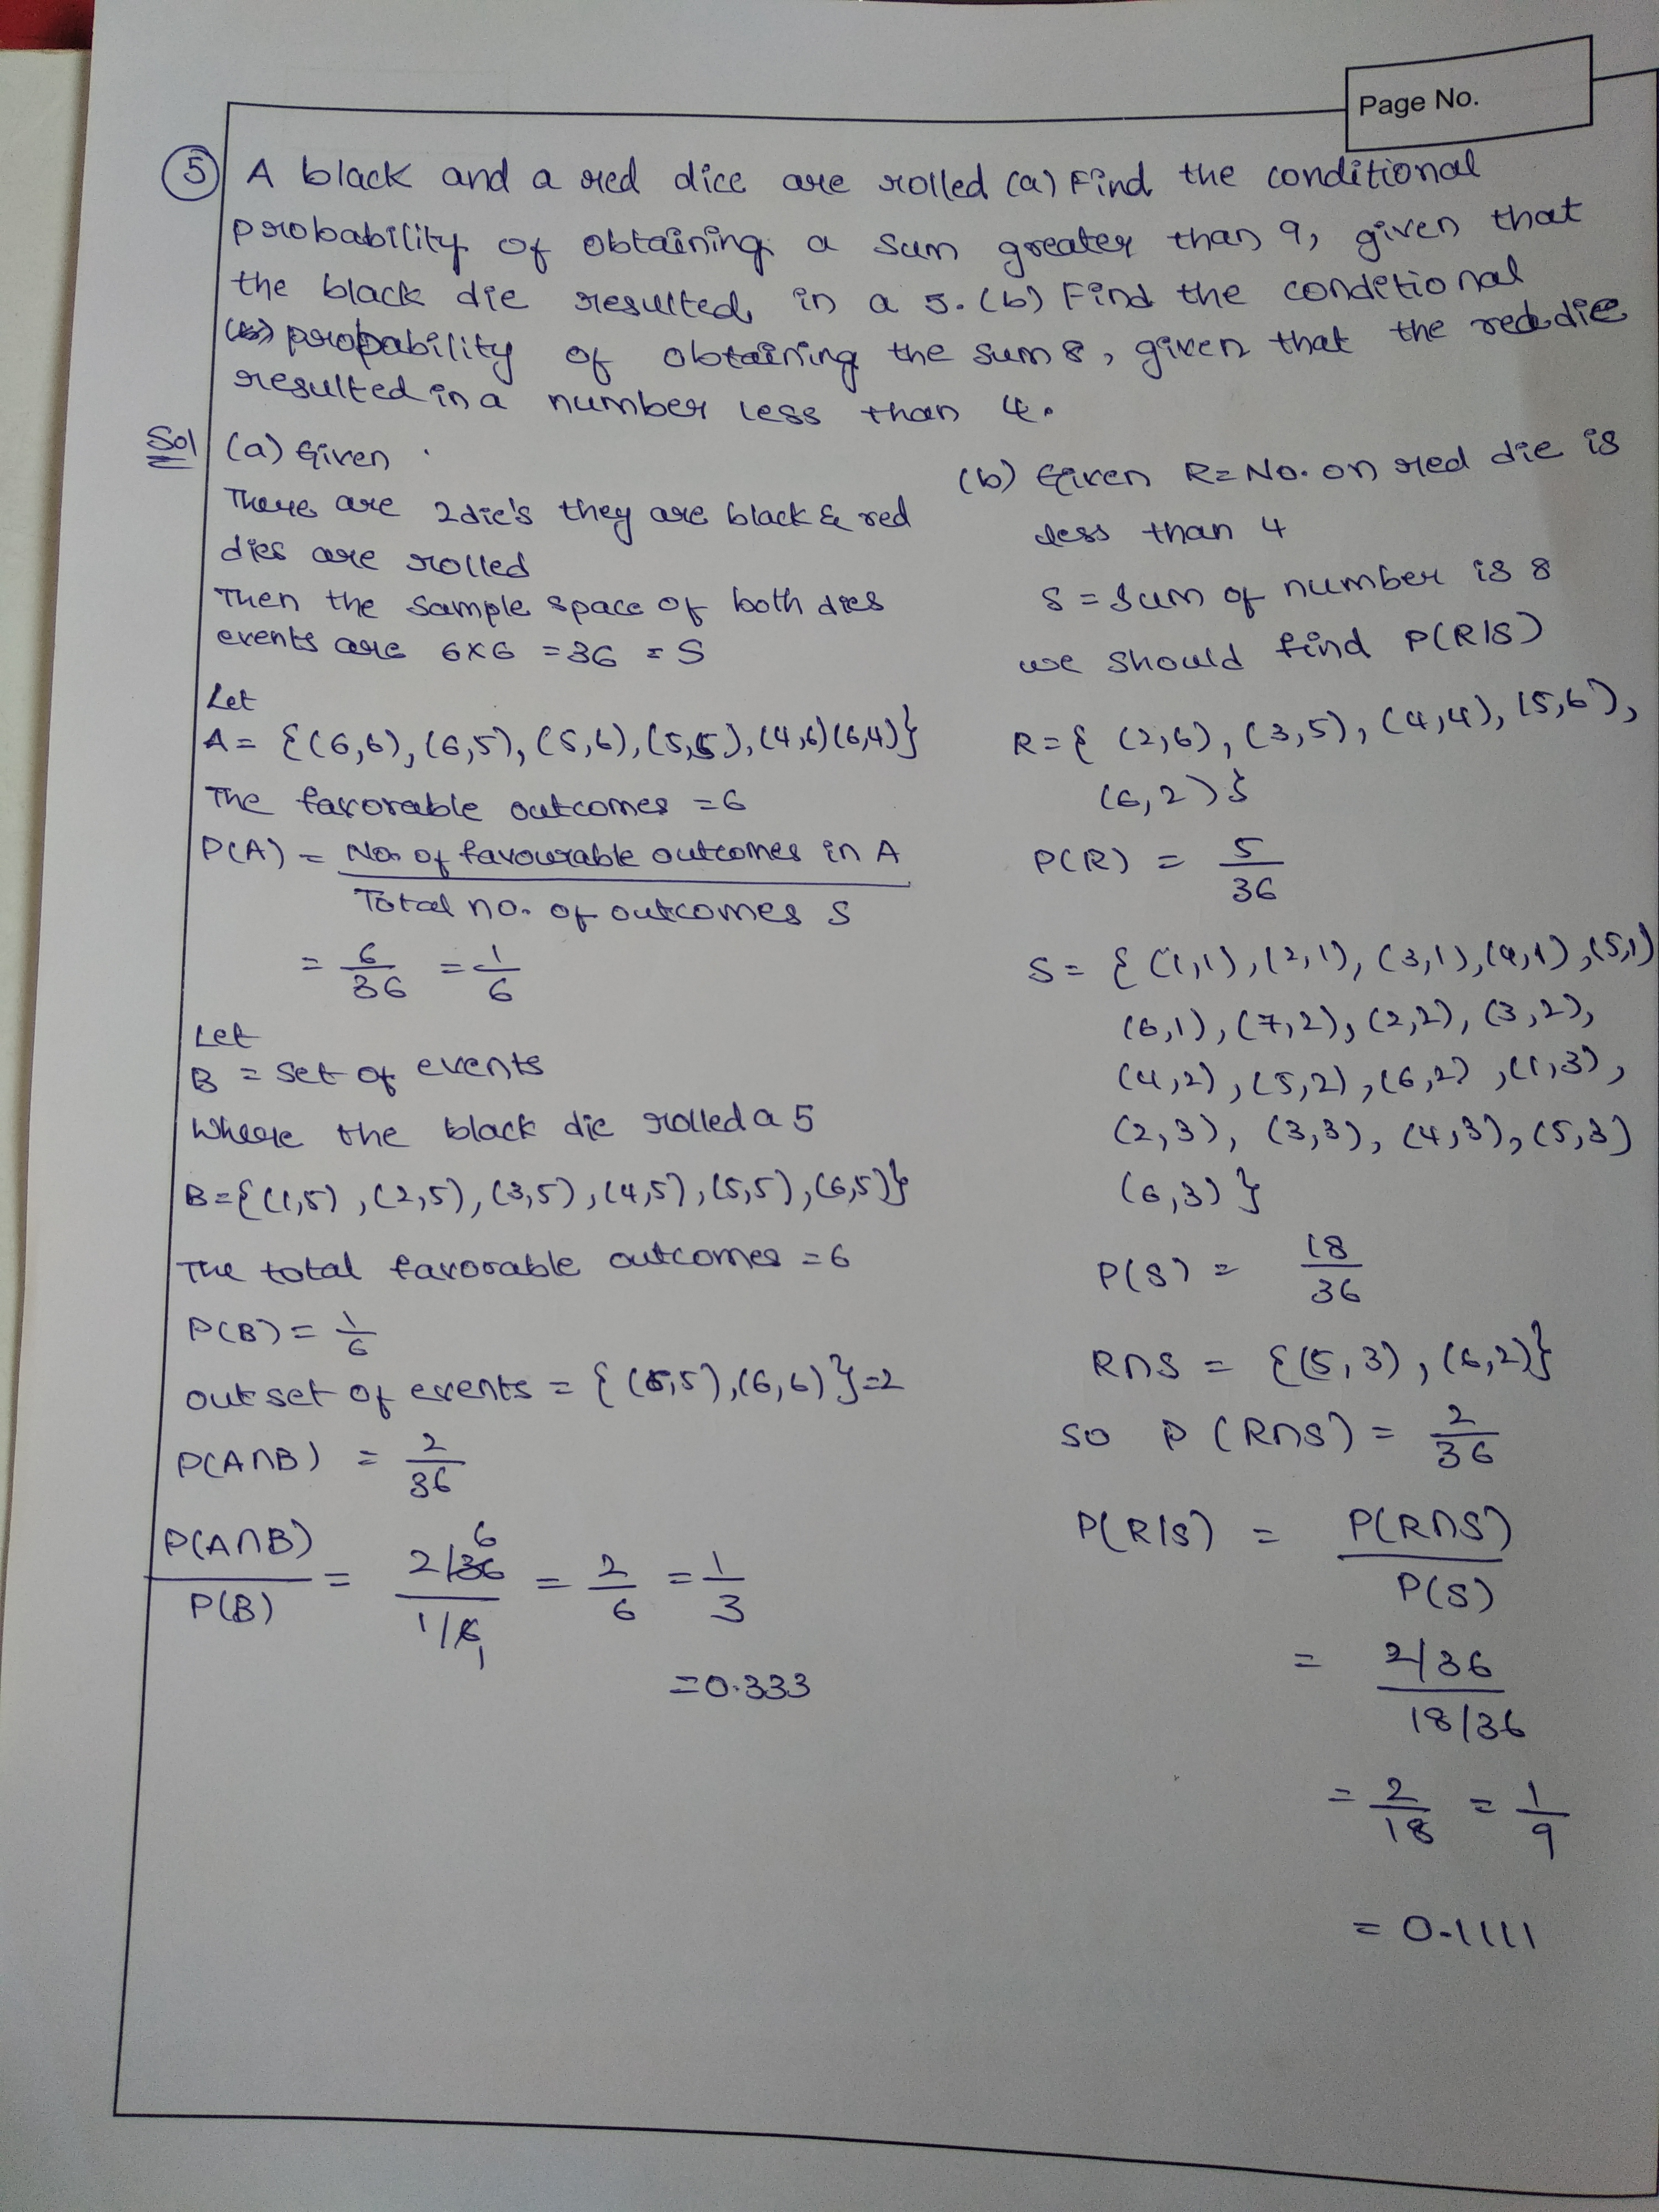 Page No.
5 A black and a red dice are rolled (a) Find the conditional
probability of obtaining a sum greater than 9, given that
the black die resulted in a 5. (b) Find the conditional
probability of obtaining the sum 8, given that the red die
resulted in a number less than 4.
Sol (a) Given
There are 2die's they are black & red
dies are rolled
Then the sample space of both dies
events are 6x6 = 36 = S
Let
A = {(6,6), (6,5), (5,6), (5,5), (4,6)(6,4)}
The favorable outcomes = 6
P(A) = No. of favourable outcomes in A
Total no. of outcomes S
= 6/36 = 1/6
Let
B = set of events
Where the black die rolled a 5
B={(1,5), (2,5), (3,5), (4,5), (5,5), (6,5)}
The total favorable outcomes = 6
P(B) = 1/6
out set of events = { (5,5), (6,6) }=2
P(A∩B) = 2/36
P(A∩B)/P(B) = 2/36 6 / 1/6 1 = 2/6 = 1/3
=0.333
(b) Given R= No. on red die is
less than 4
S = sum of number is 8
we should find P(R|S)
R={ (2,6), (3,5), (4,4), (5,6),
(6,2)}
P(R) = 5/36
S = { (1,1), (2,1), (3,1), (4,1), (5,1)
(6,1), (7,2), (2,2), (3,2),
(4,2), (5,2), (6,2), (1,3),
(2,3), (3,3), (4,3), (5,3)
(6,3) }
P(S) = 18/36
R∩S = {(5,3), (6,2)}
so P (R∩S) = 2/36
P(R|S) = P(R∩S)/P(S)
= 2/36 / 18/36
= 2/18 = 1/9
= 0.1111